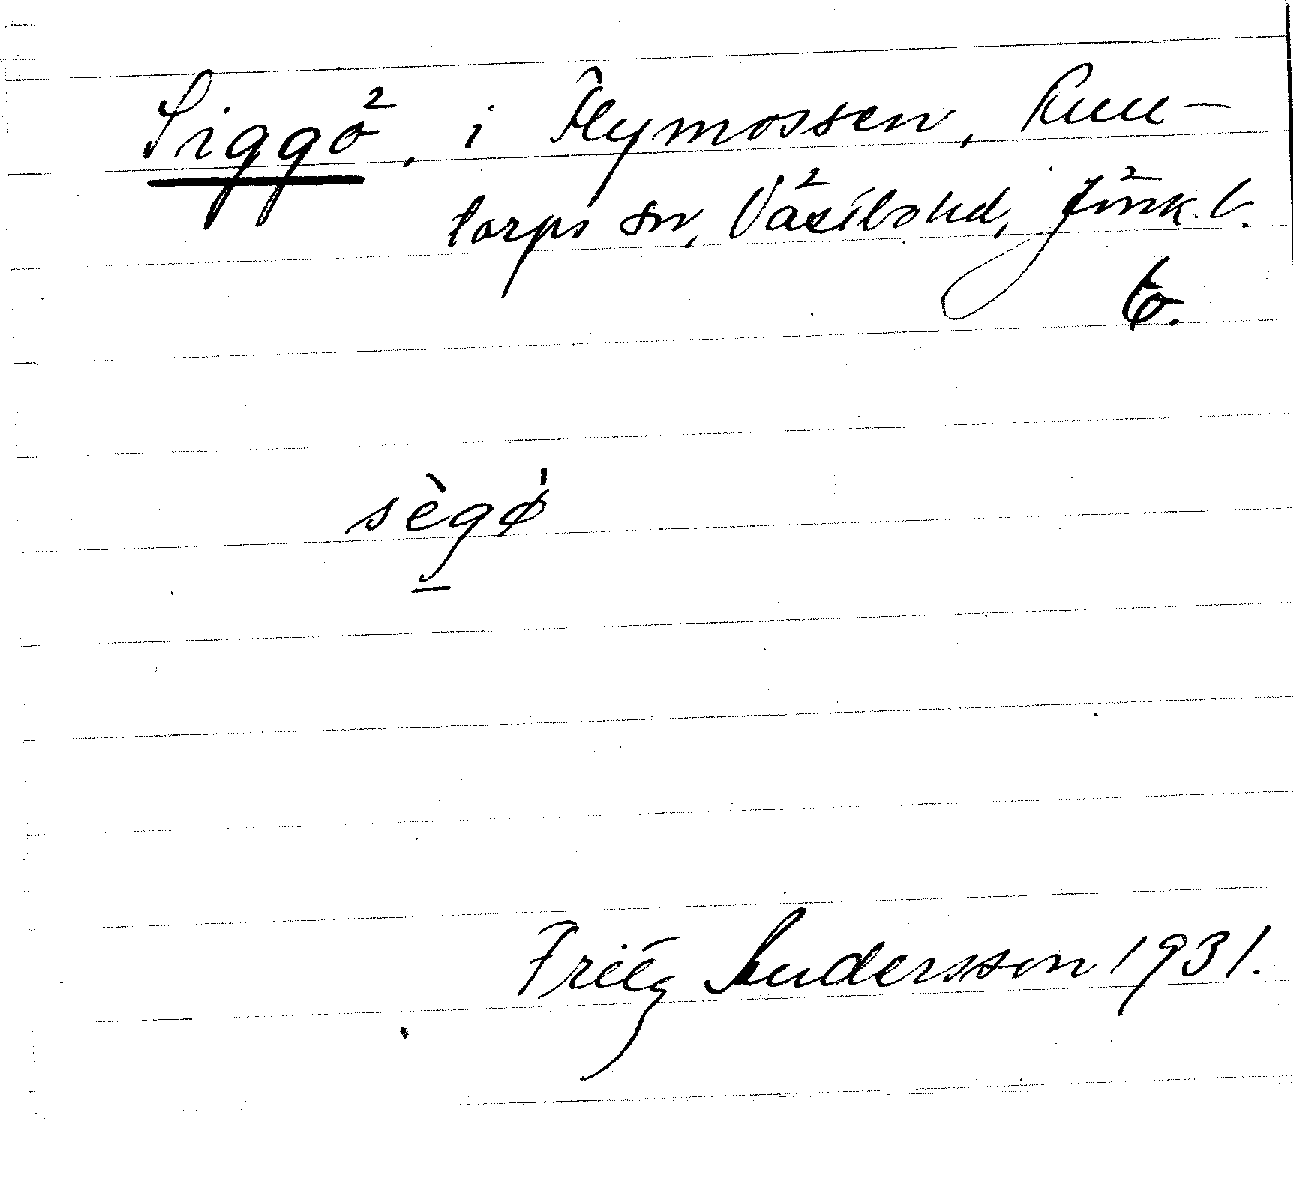 Siggö, i Flymossen, Kun-
torps sn, Västbo hd, Jönk. l.
to.
sègø̍
Fritz Andersson 1931.